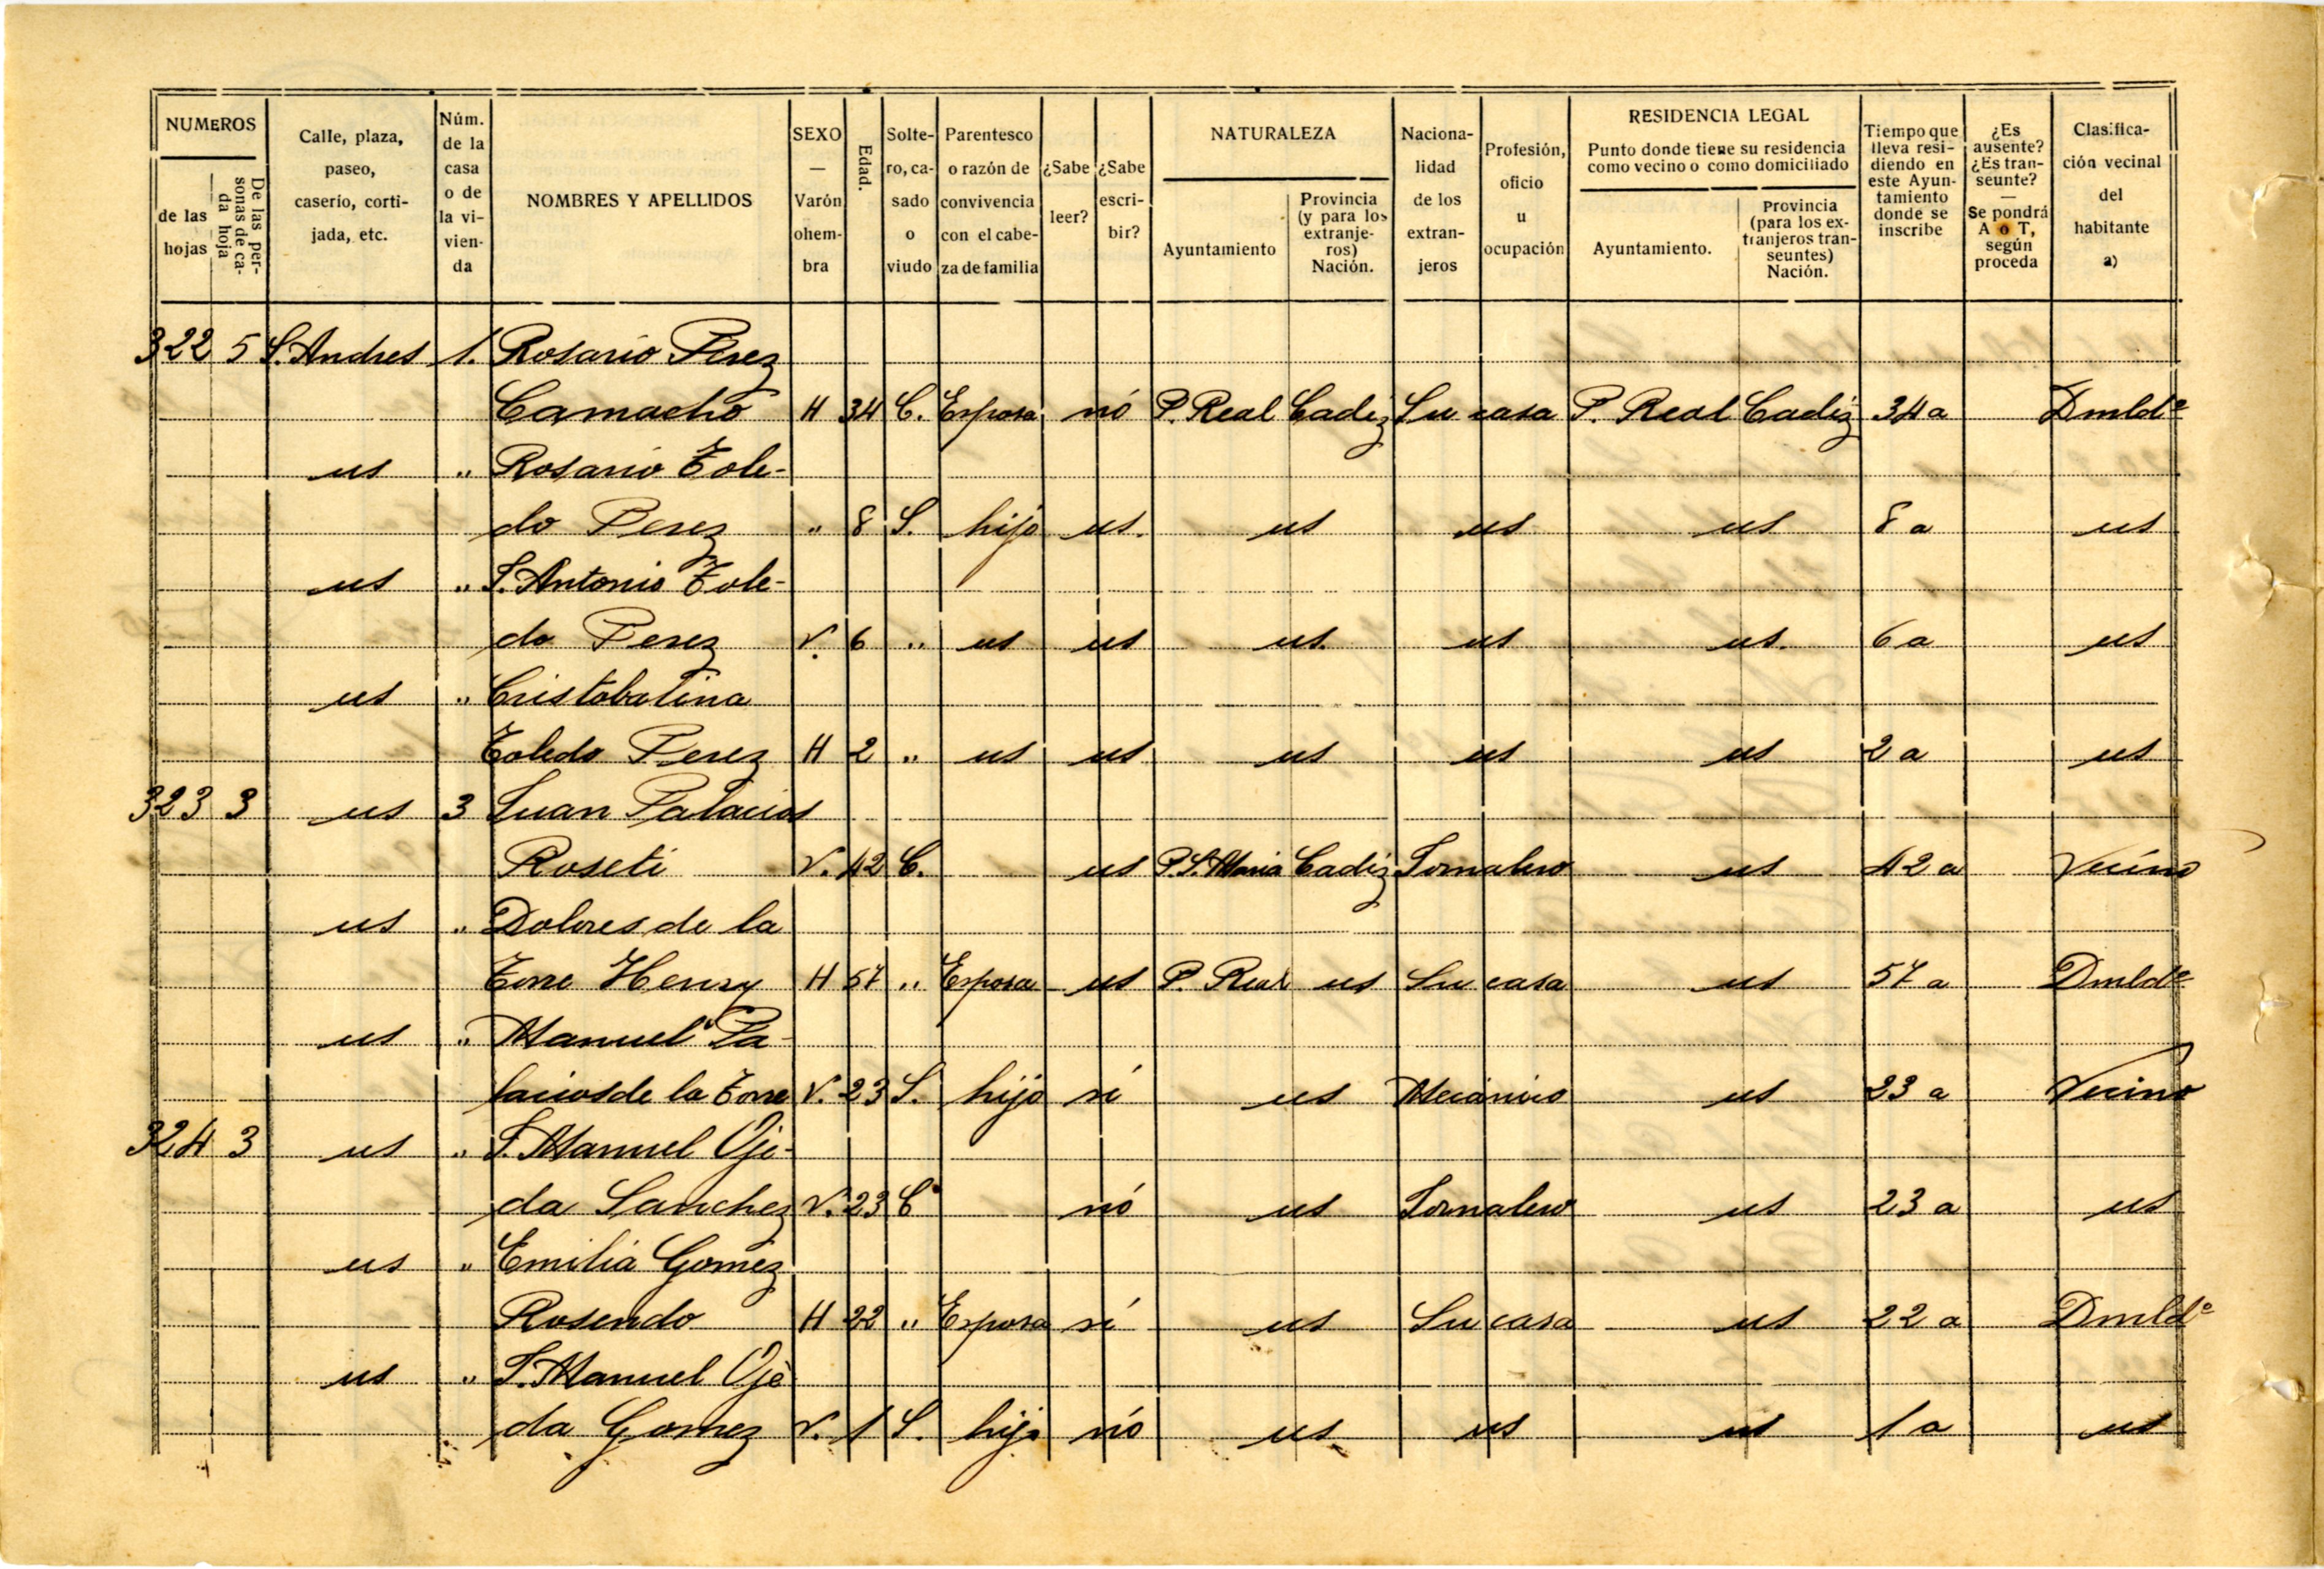 NUMEROS
de las hojas
De las personas de cada hoja
Calle, plaza, paseo, caserío, cortijada, etc.
Núm. de la casa o de la vivienda
NOMBRES Y APELLIDOS
SEXO — Varón ohembra
Edad.
Soltero, casado o viudo
Parentesco o razón de convivencia con el cabeza de familia
¿Sabe leer?
¿Sabe escribir?
NATURALEZA
Ayuntamiento
Provincia (y para los extranjeros) Nación.
Nacionalidad de los extranjeros
Profesión, oficio u ocupación
RESIDENCIA LEGAL
Punto donde tiene su residencia como vecino o como domiciliado
Ayuntamiento.
Provincia (para los extranjeros transeuntes) Nación.
Tiempo que lleva residiendo en este Ayuntamiento donde se inscribe
¿Es ausente? ¿Es transeunte? — Se pondrá A o T, según proceda
Clasificación vecinal del habitante a)
322 5 S. Andres 1. Rosario Perez
Camacho H 34 C. Esposa nó P. Real Cadiz Su casa P. Real Cadiz 34 a Dmldº
us " Rosario Tole-
do Perez " 8 S. hijo us. us us us 8 a us
us " S. Antonio Tole-
do Perez V. 6 " us us us. us us. 6 a us
us " Cristobalina
Toledo Perez H 2 " us us us us us 2 a us
323 3 us 3 Juan Palacios
Roseti V. 42 C. us P. S. Maria Cadiz Jornalero us 42 a Vecino
us " Dolores de la
Torre Henry H 57 " Esposa us P. Real us Su casa us 57 a Dmldº
us " Manuel Pa-
lacios de la Torre V. 23 S. hijo sí us Mecánico us 23 a Vecino
324 3 us " J. Manuel Oje-
da Sanchez V. 23 C nó us Jornalero us 23 a us
us " Emilia Gomez
Rosendo H 22 " Esposa sí us Su casa us 22 a Dmldº
us " J. Manuel Oje
da Gomez V. 1 S. hijo nó us us us 1 a us